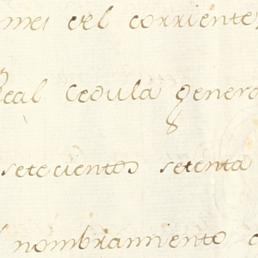 mes del corriente
Real Cedula genera
setecientos setenta
nombramiento